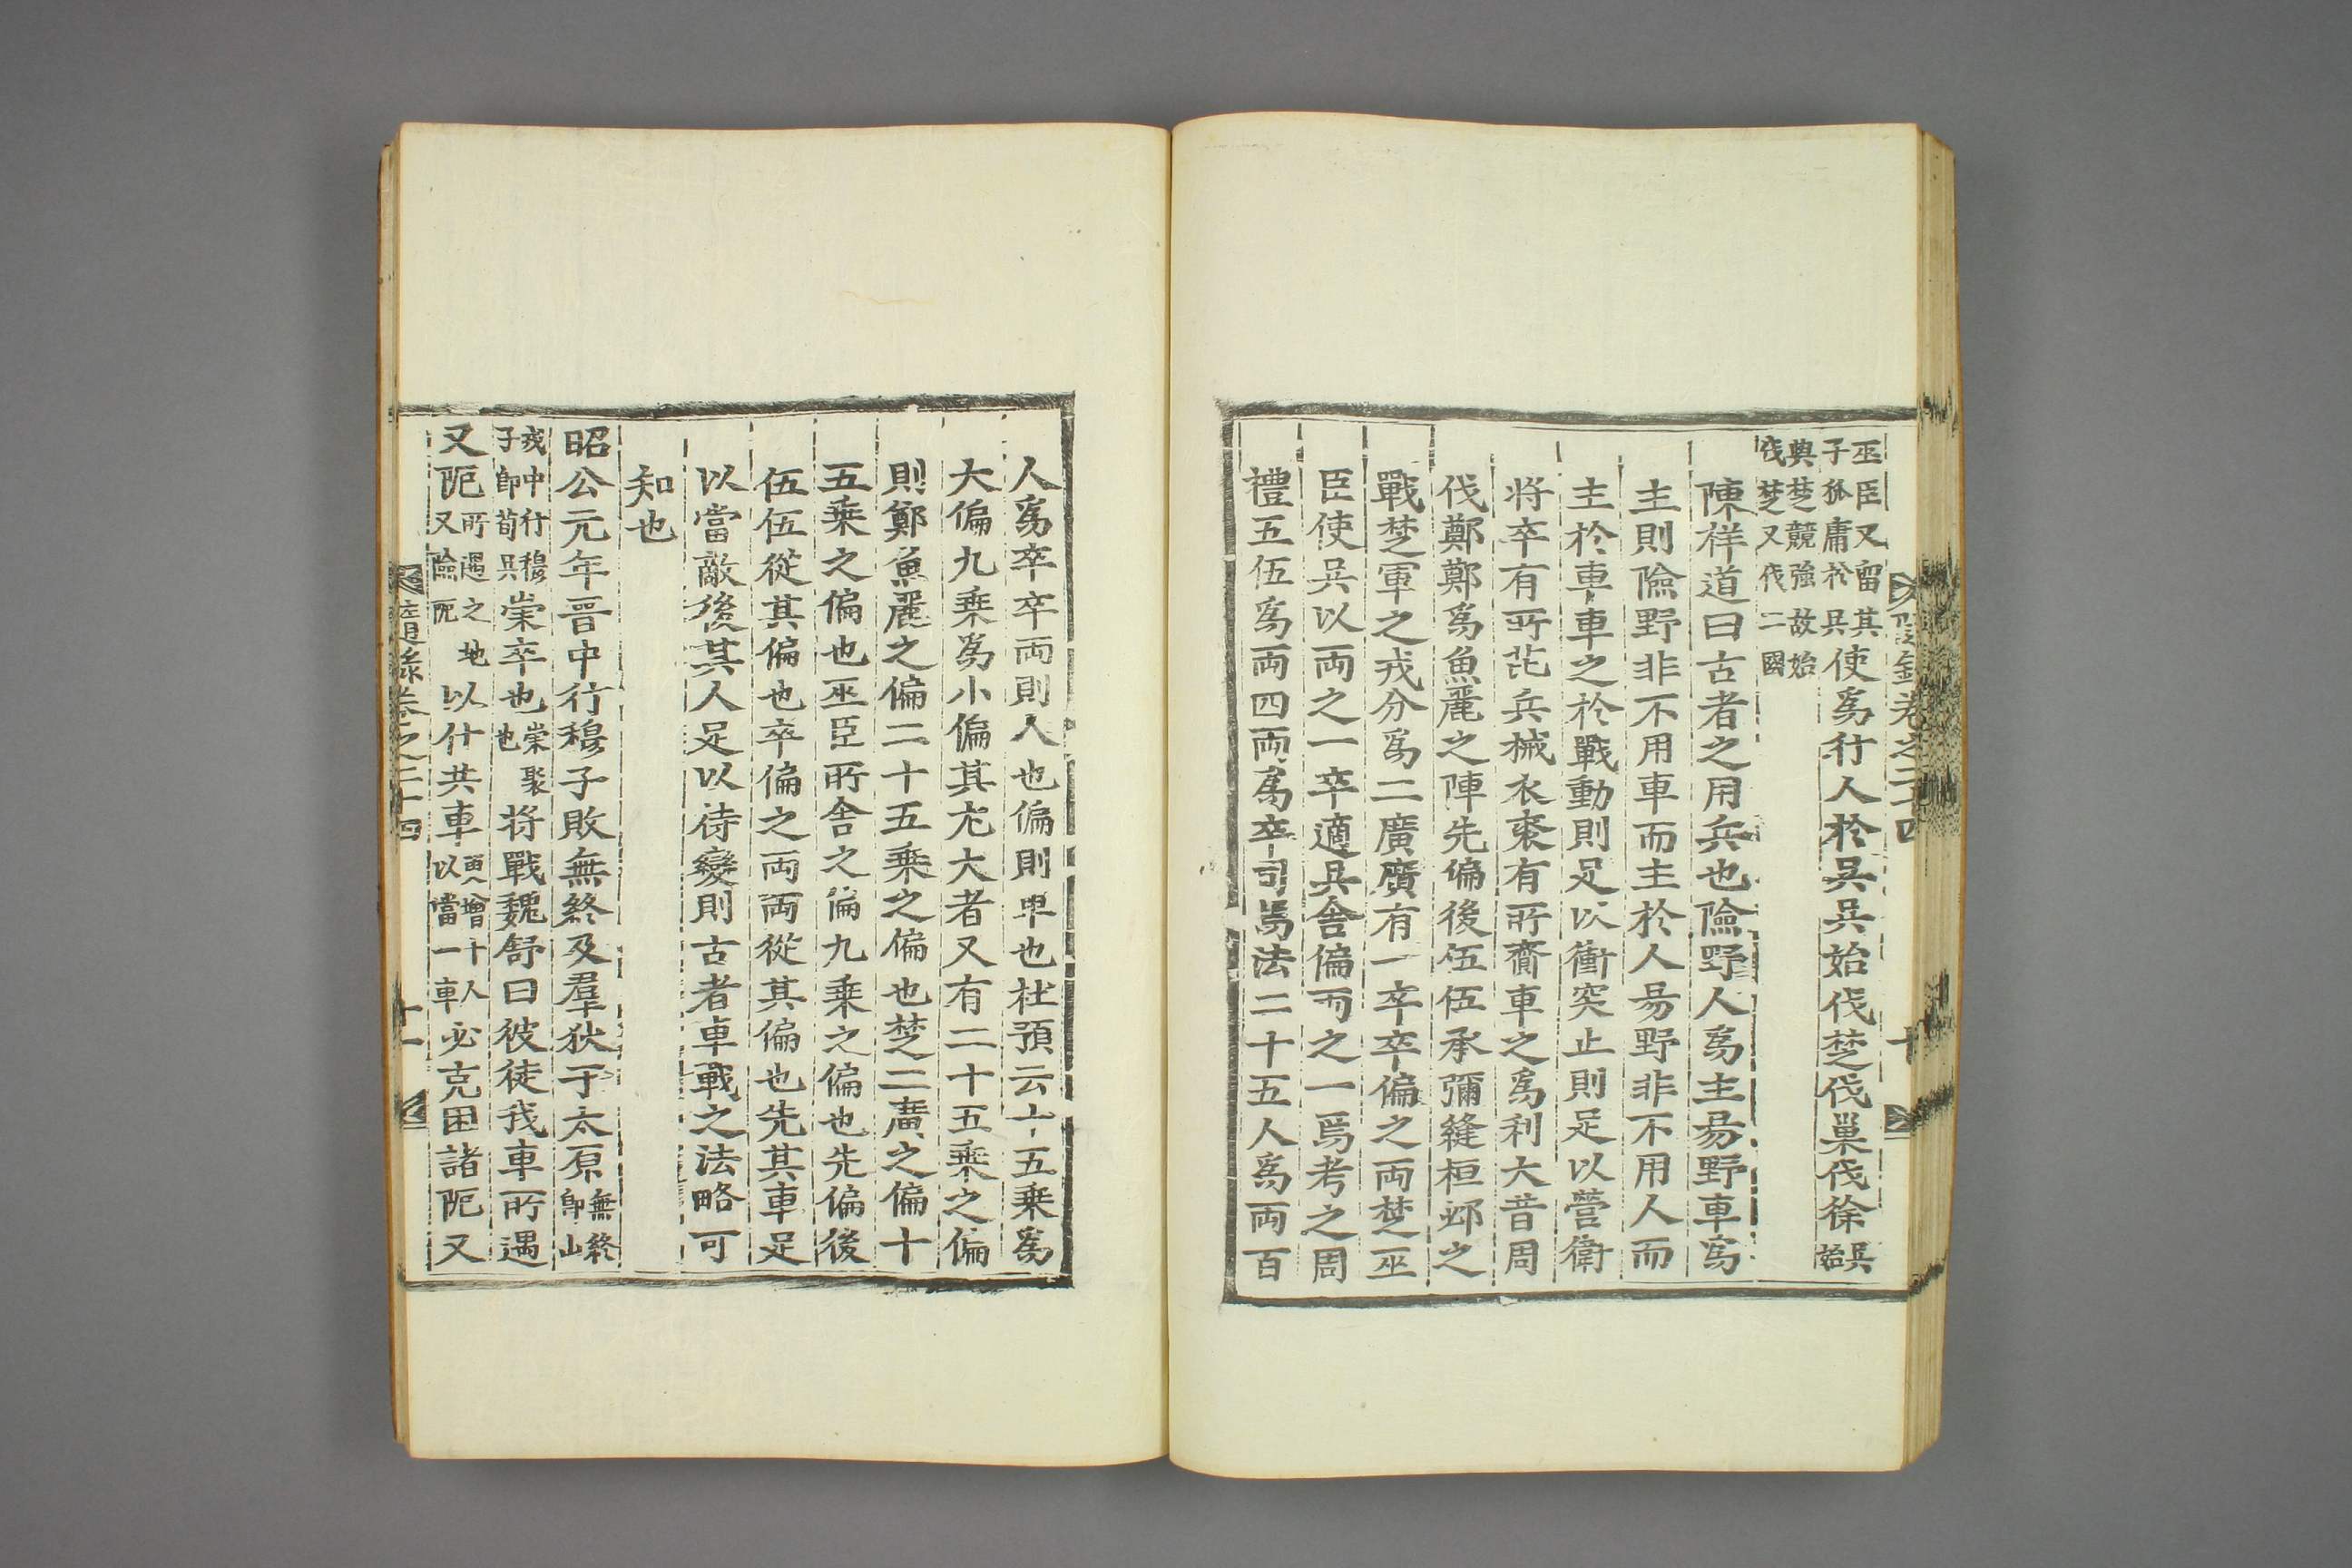 巫臣又留其子狐庸於吳使爲行人於吳吳始伐楚伐巢伐徐吳始
與楚競強故始伐楚又伐二國
陳祥道曰古者之用兵也險野人爲主易野車爲
主則險野非不用車而主於人易野非不用人而
主於車車之於戰動則足以衝突止則足以營衛
將卒有所芘兵械衣裘有所齎車之爲利大昔周
伐鄭鄭爲魚麗之陣先偏後伍伍承彌縫桓邲之
戰楚軍之戎分爲二廣廣有一卒卒偏之兩楚巫
臣使吳以兩之一卒適吳舍偏兩之一焉考之周
禮五伍爲兩四兩爲卒司馬法二十五人爲兩百
人爲卒卒兩則人也偏則車也杜預云十五乘爲
大偏九乘爲小偏其尤大者又有二十五乘之偏
則鄭魚麗之偏二十五乘之偏也楚二廣之偏十
五乘之偏也巫臣所舍之偏九乘之偏也先偏後
伍伍從其偏也卒偏之兩兩從其偏也先其車足
以當敵後其人足以待變則古者車戰之法略可
知也
昭公元年晋中行穆子敗無終及羣狄于太原無終山
戎中行穆子即荀吳崇卒也崇聚也將戰魏舒曰彼徒我車所遇
又阨所遇之地又險阨以什共車更增十人以當一車必克困諸阨又
卷之二十四
十一